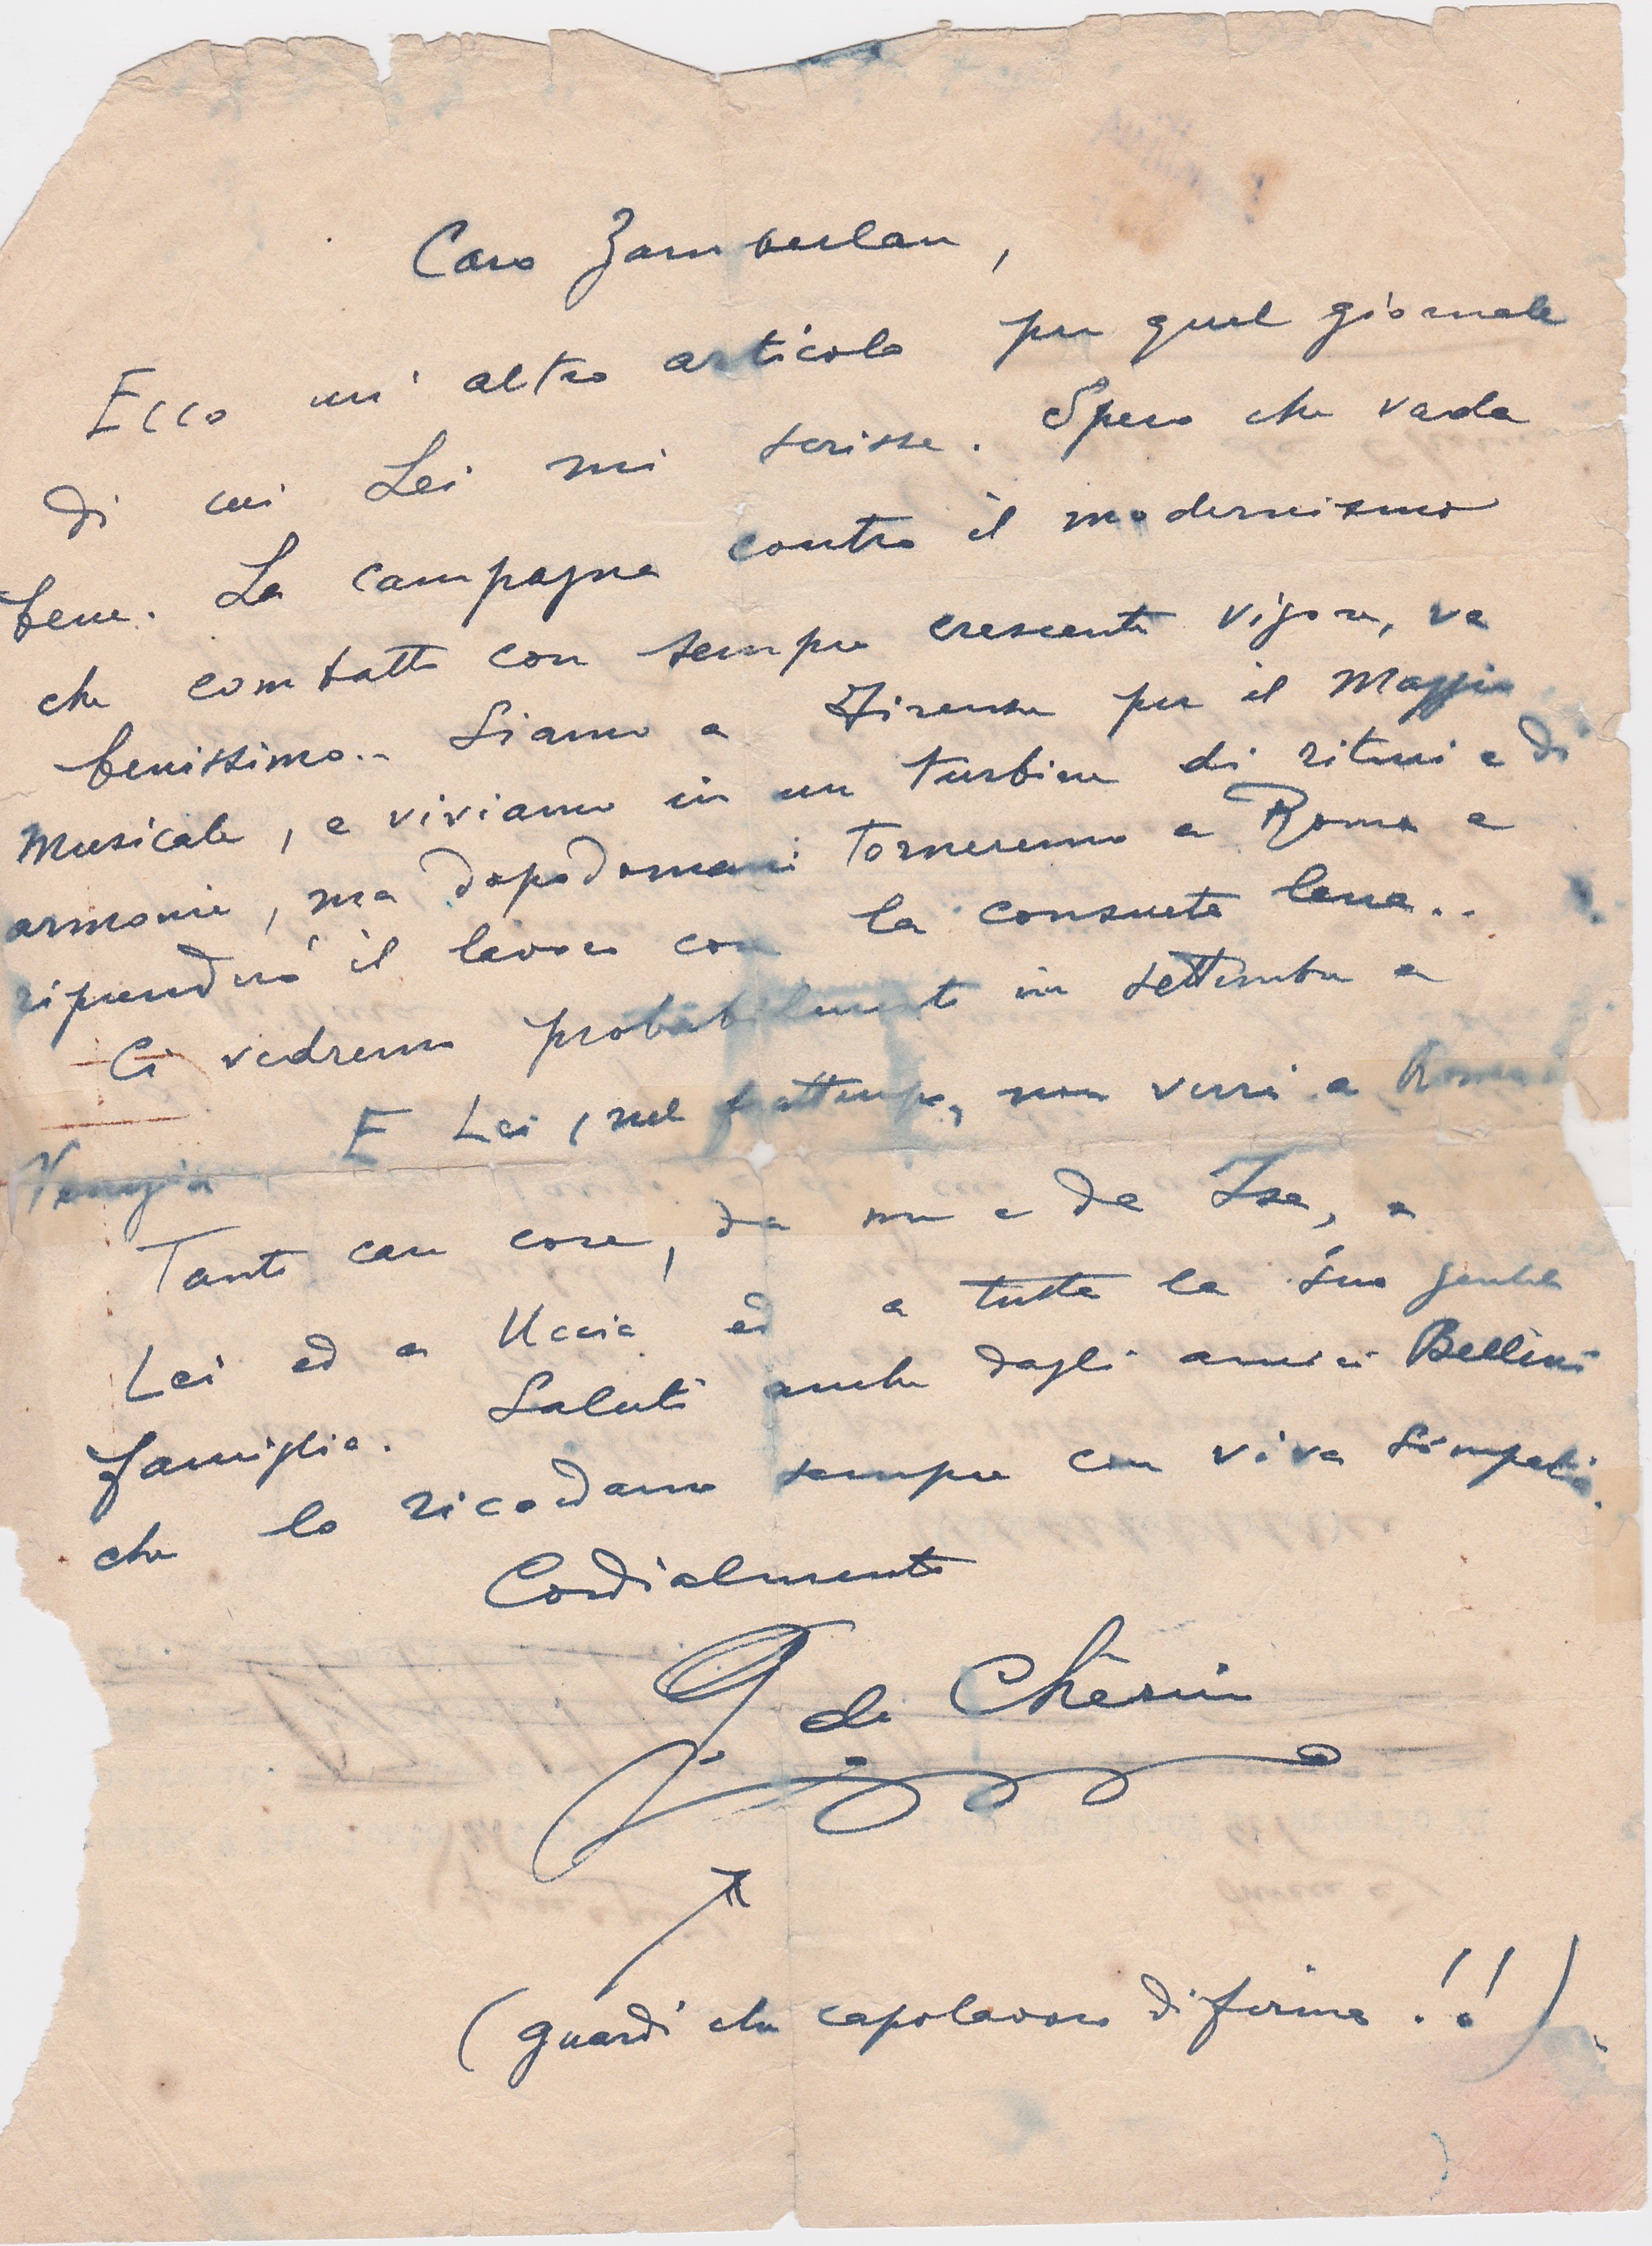 Caro Zamberlan,
Ecco un' altro articolo per quel giornale
di cui Lei mi scrisse. Spero che vada
bene. La campagna contro il modernismo
che combatto con sempre crescente vigore, va
benissimo.. Siamo a Firenze per il Maggio
Musicale, e viviamo in un turbine di ritmi e di
armonie, ma dopodomani torneremo a Roma e
riprenderò il lavoro con la consueta lena..
Ci vedremo probabilmente in settembre a
Venezia. E Lei, nel frattempo, non verrà a Roma?
Tante care cose, da me e da Isa, a
Lei ed a Uccia ed a tutta la Sua gentile
famiglia. Saluti anche dagli amici Bellini
che lo ricordano sempre con viva simpatia.
Cordialmente
G. de Chirico
(guardi che capolavoro di firma !!)